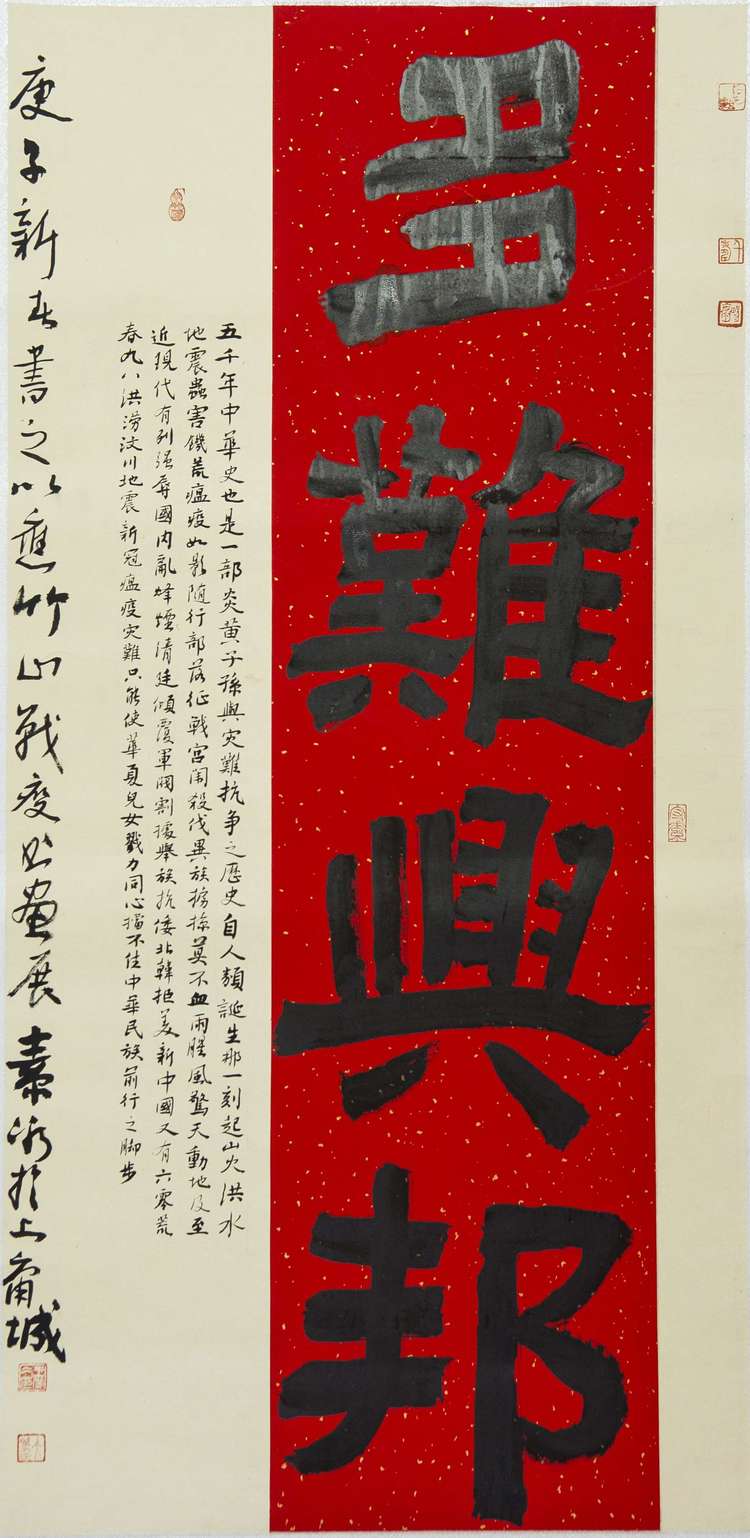 多難興邦
五千年中華史也是一部炎黄子孫與灾難抗争之歷史自人類誕生那一刻起山火洪水
地震蟲害饑荒瘟疫如影随行部落征戰宮闱殺伐異族掳掠莫不血雨腥風驚天動地及至
近現代有列强辱國内亂烽煙清廷傾覆軍閥割據舉族抗倭北韓拒美新中國又有六零荒
春九八洪涝汶川地震新冠瘟疫灾難只能使華夏兒女戮力同心擋不住中華民族前行之脚步
庚子新春書之以應竹山戰疫書画展素於上庸城